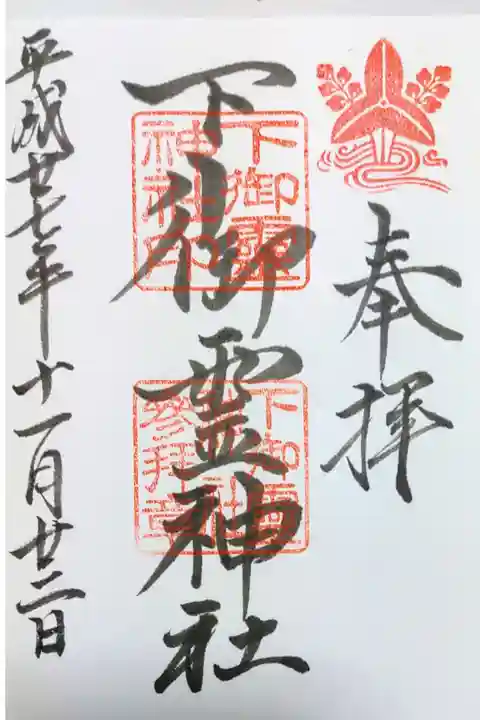 奉拝
下御霊神社
下御霊
神社印
下御霊
神社
參拜章
平成廿七年十一月廿二日